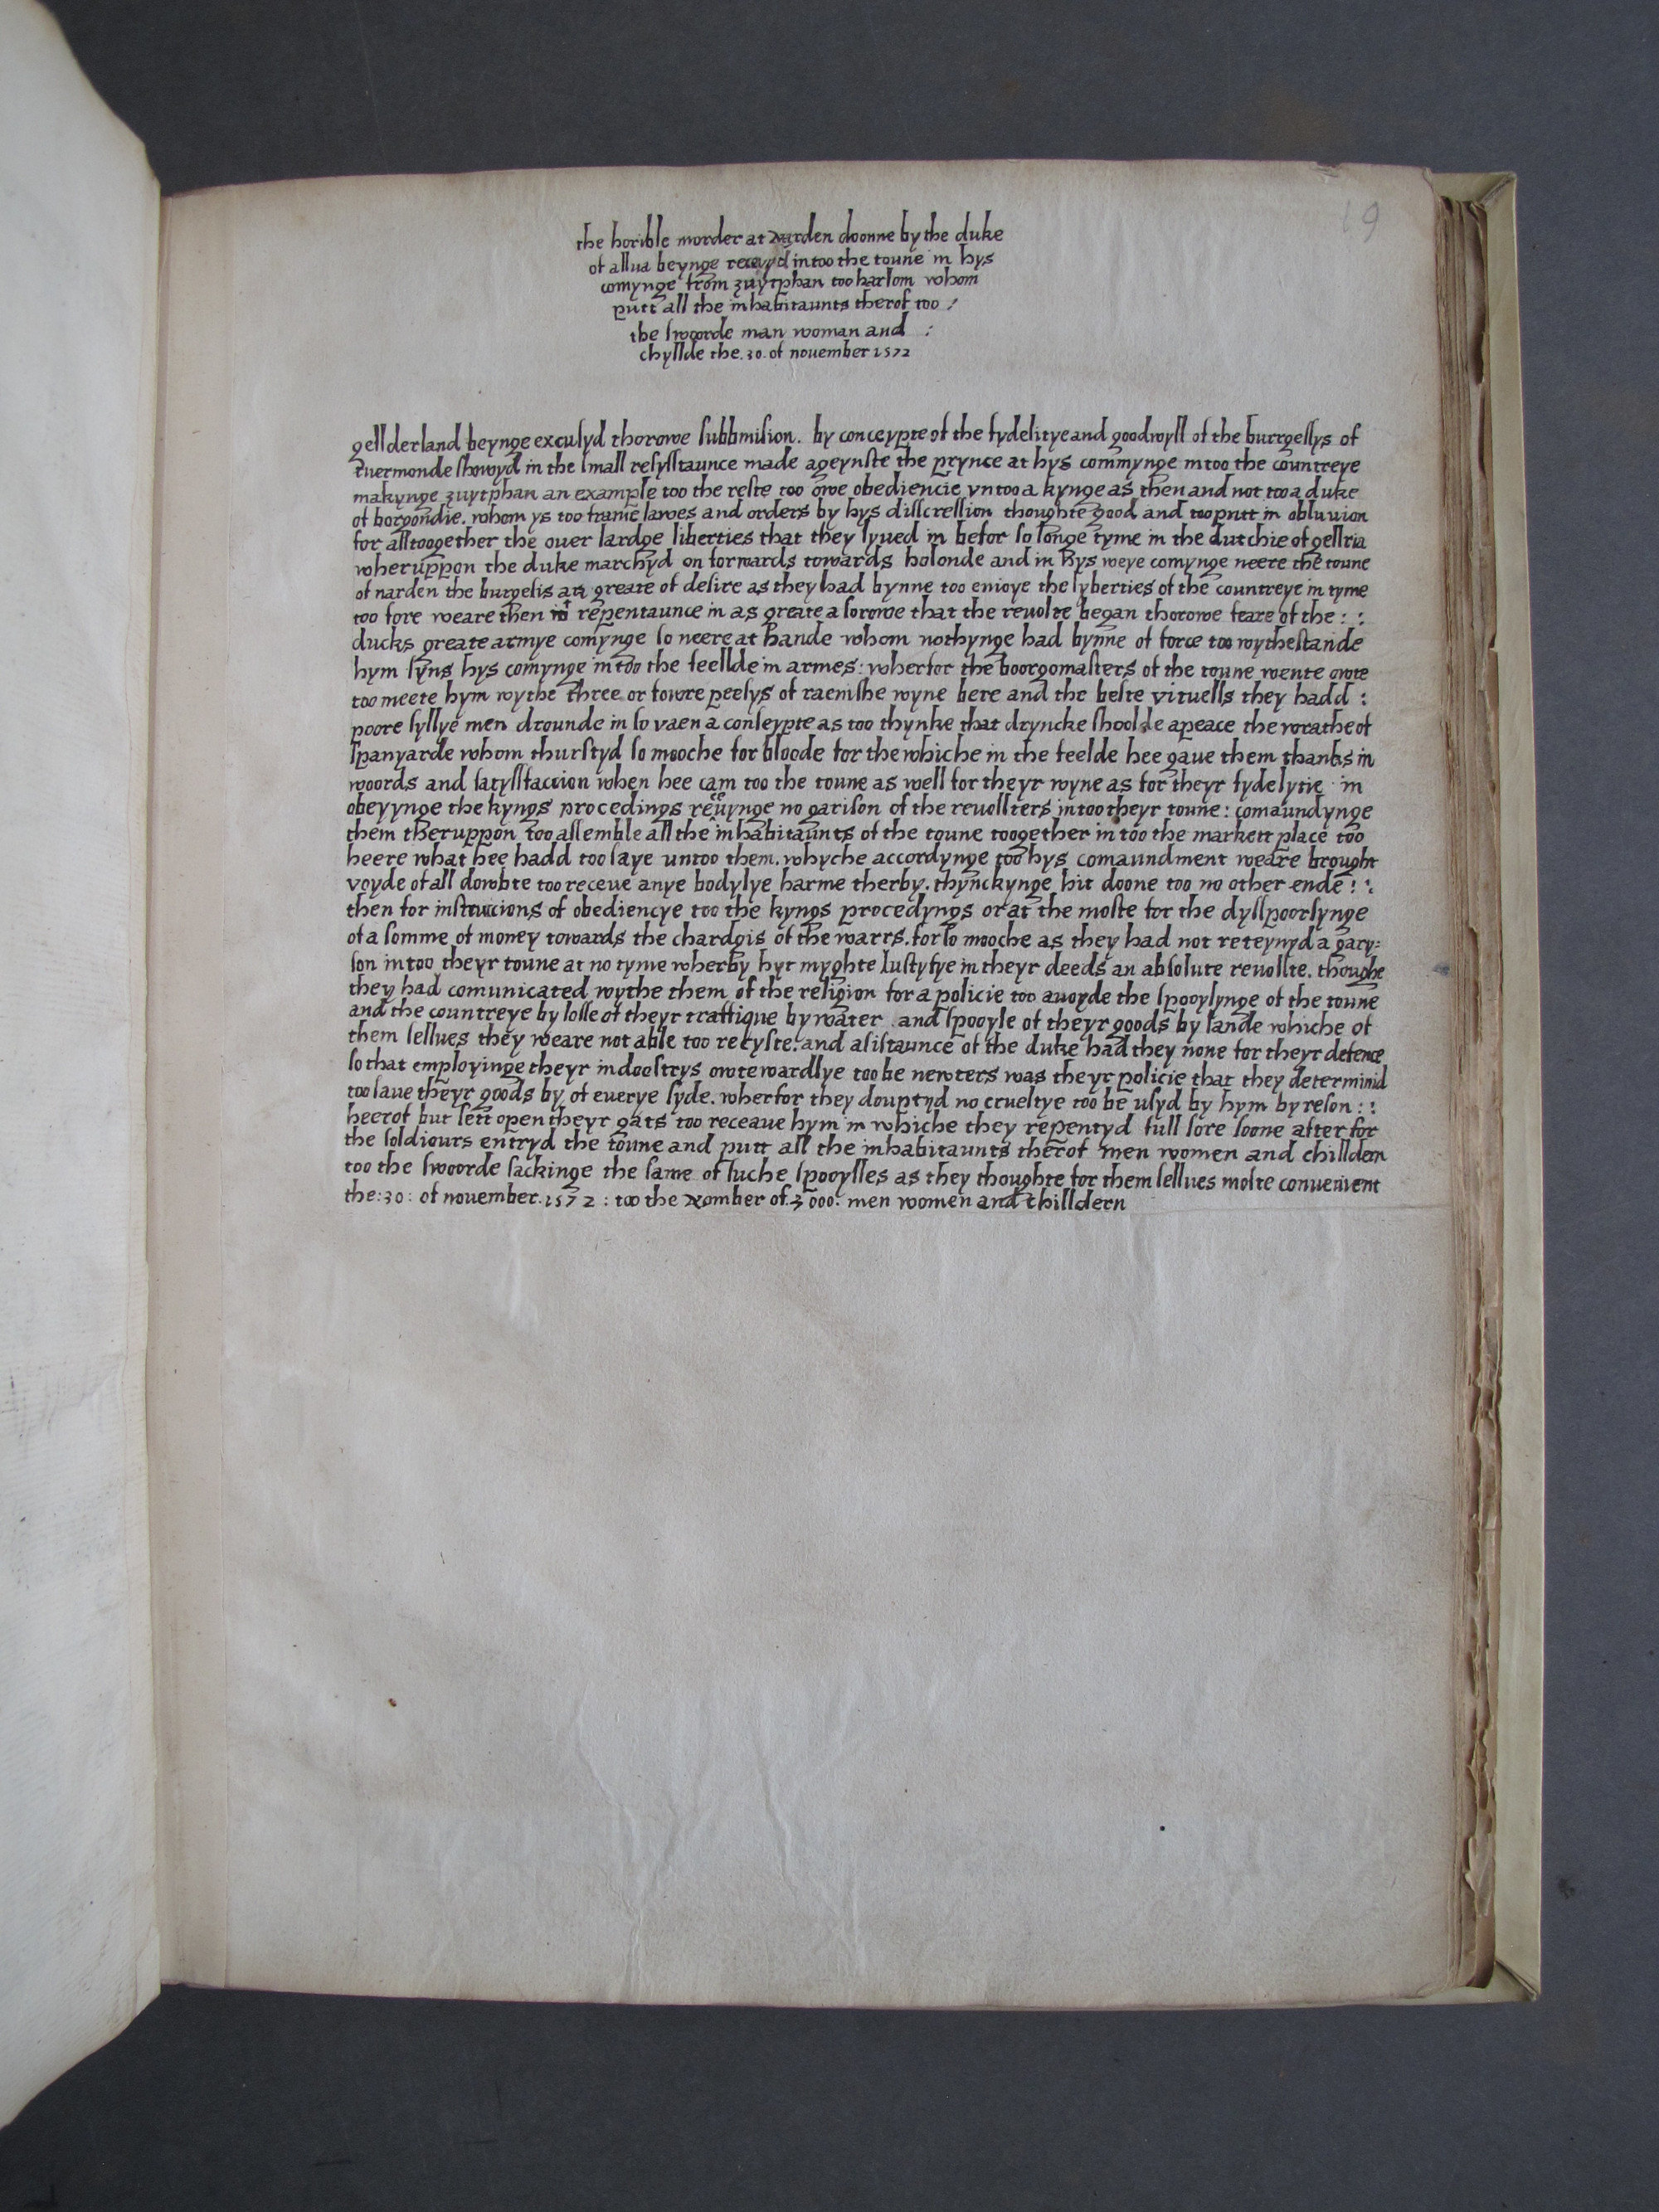 19
the horible morder at narden doonne by the duke
of allua beynge receyvd intoo the toune in hys
comynge from zuytphan too harlom whom
putt all the inhabitaunts therof too /
the swoorde man woman and :
chyllde the .30. of november 1572
gellderland beynge excusyd thorowe subbmision. by conceypte of the fydelitye and goodwyll of the burrgessys of
ruermonde showyd in the small resysstaunce made ageynste the prynce at hys commynge intoo the countreye
makynge zuytphan an example too the reste too owe obediencie vntoo a kynge as then and not too a duke
of borgondie. whom ys too frame lawes and orders by hys disscression thoughte good and too putt in obluvion
for alltoogether the ouer lardge liberties that they lyued in befor so longe tyme in the dutchie of gellria
wheruppon the duke marchyd on forwards towards holonde and in hys weye comynge neere the toune
of narden the burgesis as greate of desire as they had bynne too enioye the lyberties of the countreye in tyme
too fore weare then repentaunce in as greate a sorowe that the reuolte began thorowe feare of the : :
ducks greate armye comynge so neere at hande whom nothynge had bynne of force too wythestande
hym syns hys comynge in too the feellde in armes : wherfor the boorgomasters of the toune wente owte
too meete hym wythe three or fowre peesys of raenishe wyne bere and the beste vituells they hadd :
poore syllye men drounde in so vaen a conseypte as too thynke that dryncke shoolde apeace the wrathe of
spanyarde whom thurstyd so mooche for bloode for the whiche in the feelde hee gaue them thanks in
woords and satysfaccion when hee cam too the toune as well for theyr wyne as for theyr fydelytie in
obeyynge the kyngs procedings receuynge no garison of the reuollters intoo theyr toune : comaundynge
them theruppon too assemble all the inhabitaunts of the toune toogether in too the markett place too
heere what hee hadd too saye untoo them. whyche accordynge too hys comaundment weare brought
voyde of all dowbte too receue anye bodylye harme therby. thynckynge hit doone too no other ende : :
then for instruccions of obediencye too the kyngs procedyngs or at the moste for the dysspoorsynge
of a somme of money towards the chardgis of the warrs. for so mooche as they had not reteynyd a gary=
son in too theyr toune at no tyme wherby hyt myghte Iustyfye in theyr deeds an absolute reuollte. thoughe
they had comunicated wythe them of the religion for a policie too auoyde the spooylynge of the toune
and the countreye by losse of theyr traffique by water . and spooyle of theyr goods by lande whiche of
them sellues they weare not able too recyste. and asistaunce of the duke had they none for theyr defence
so that employinge theyr indoostrys owtewardlye too be newters was theyr policie that they determinid
too saue theyr goods by of euerye syde. wherfor they douptyd no crueltye too be usyd by hym by reson : :
heerof but sett open theyr gats too receaue hym in whiche they repentyd full sore soone after for
the soldiours entryd the toune and putt all the inhabitaunts therof men women and chilldern
too the swoorde sackinge the same of suche spooylles as they thoughte for them sellues moste convenient
the : 30 : of november . 1572 : too the nomber of . 3000 . men women and chilldern